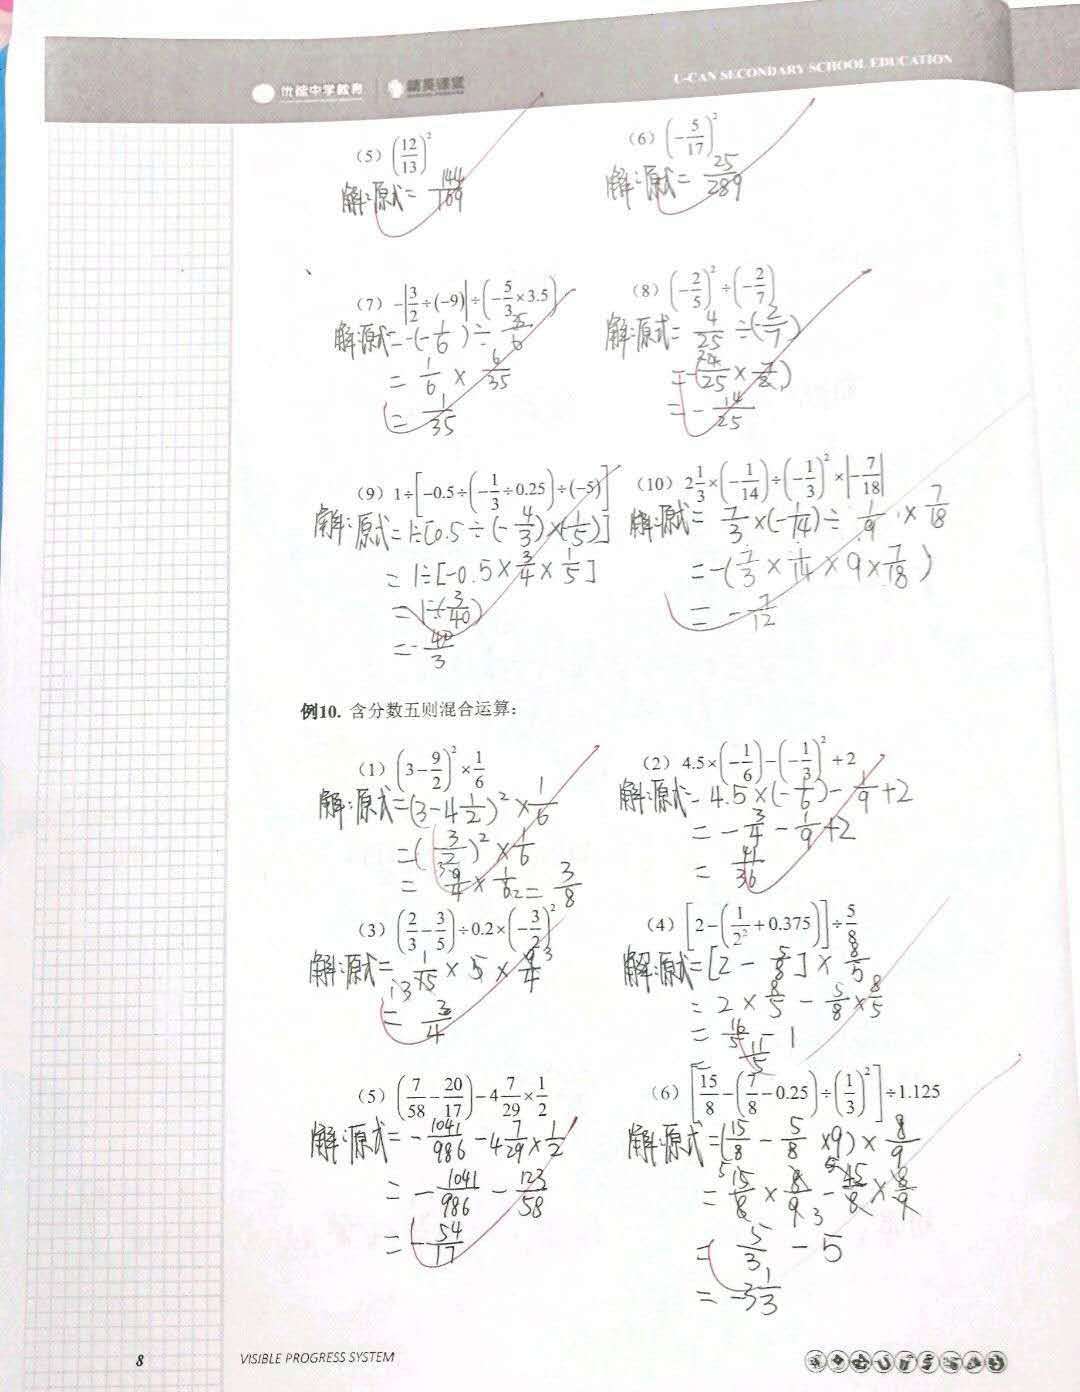 优能中学教育 精英课堂
U-CAN SECONDARY SCHOOL EDUCATION
(5) (12/13)²
解:原式= 144/169
(6) (-5/17)²
解:原式= 25/289
(7) -|3/2÷(-9)|÷(-5/3×3.5)
解:原式=-(-1/6)÷35/6
= 1/6 × 6/35
= 1/35
(8) (-2/5)²÷(-2/7)
解:原式= 4/25 ÷(2/7)
=-(4/25 × 7/2)
= -14/25
(9) 1÷[-0.5÷(-1/3÷0.25)÷(-5)]
解:原式=1÷[0.5÷(-4/3)×(1/5)]
= 1÷[-0.5×3/4×1/5]
= 1÷(3/40)
=-40/3
(10) 2 1/3×(-1/14)÷(-1/3)²×|-7/18|
解:原式= 7/3×(-1/14)÷1/9×7/18
=-(7/3×1/14×9×7/18)
= -7/12
例10. 含分数五则混合运算:
(1) (3-9/2)²×1/6
解:原式=(3-4 1/2)²×1/6
=(-3/2)²×1/6
= 9/4×1/6 = 3/8
(2) 4.5×(-1/6)-(-1/3)²+2
解:原式=4.5×(-1/6)-1/9+2
= -3/4-1/9+2
= 41/36
(3) (2/3-3/5)÷0.2×(-3/2)²
解:原式= 1/15×5×9/4
= 3/4
(4) [2-(1/2²+0.375)]÷5/8
解:原式=[2-5/8]×8/5
= 2×8/5-5/8×8/5
= 16/5-1
= 11/5
(5) (7/58-20/17)-4 7/29×1/2
解:原式=-1041/986-4 7/29×1/2
= -1041/986-123/58
= -54/17
(6) [15/8-(7/8-0.25)÷(1/3)²]÷1.125
解:原式=(15/8-5/8×9)×8/9
= 15/8×8/9-45/8×8/9
= 5/3-5
= -3 1/3
8
VISIBLE PROGRESS SYSTEM